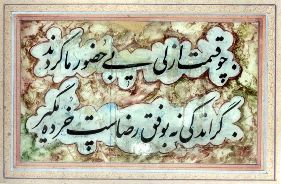 چو قسمت ازلی بی حضور ما کردند
گر اندکی نه بوفق رضاست خرده مگیر